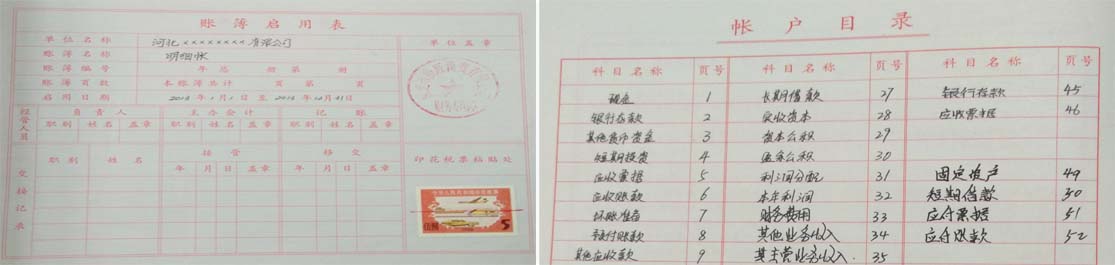 账簿启用表
单位名称 河北××××××××有限公司 单位盖章
账簿名称 明细帐
账簿编号 年总 册第 册
账簿页数 本账簿共计 页第 页
启用日期
经管人员 负责人 主办会计 记账
职别 姓名 盖章 职别 姓名 盖章 职别 姓名 盖章
交接记录 职别 姓名 接管 移交 印花税票粘贴处
年 月 日 盖章 年 月 日 盖章
伍角 5
帐户目录
科目名称 页号 科目名称 页号 科目名称 页号
现金 1 长期借款 27 银行存款 45
银行存款 2 实收资本 28 应收票据 46
其他货币资金 3 资本公积 29
短期投资 4 盈余公积 30
应收票据 5 利润分配 31 固定资产 49
应收账款 6 本年利润 32 短期借款 50
坏账准备 7 财务费用 33 应付票据 51
预付账款 8 其他业务收入 34 应付账款 52
其他应收款 9 其主营业务收入 35